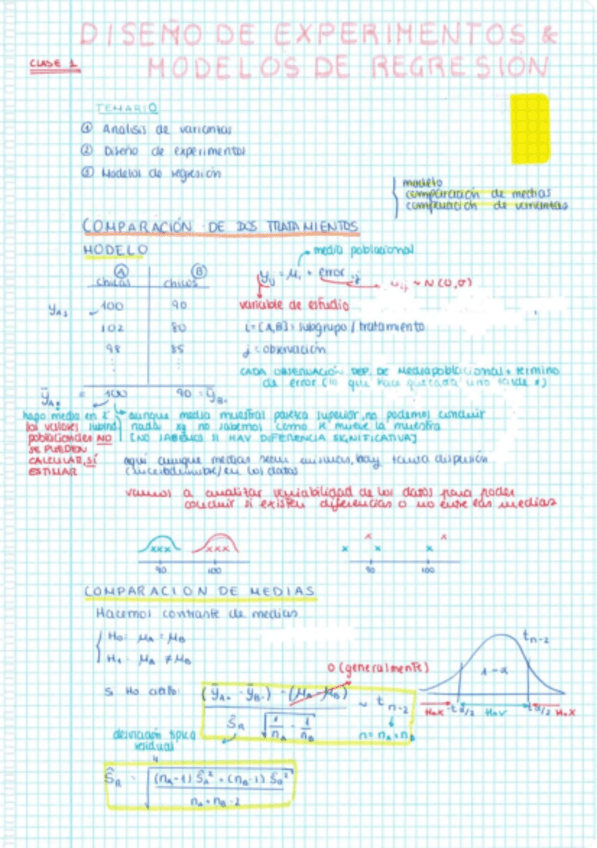 DISEÑO DE EXPERIMENTOS &
CLASE 1
MODELOS DE REGRESIÓN
TEMARIO
① Análisis de varianzas
② Diseño de experimentos
③ Modelos de regresión
modelo
comparación de medias
comparación de varianzas
COMPARACIÓN DE DOS TRATAMIENTOS
MODELO
media poblacional
Ⓐ Ⓑ
chicas chicos
y_ij = μ_i + error_ij
u_ij ~ N(0,σ)
y_A1 100 90
variable de estudio
102 80
i = {A,B} = subgrupo / tratamiento
98 85
j = observación
CADA OBSERVACIÓN DEP. DE Media poblacional + término
de error (lo que hace que cada uno
ȳ_A• = 100 90 = ȳ_B•
hago media en
los valores
poblacionales NO
SE PUEDEN
CALCULAR, SÍ
ESTIMAR
aunque media muestral parezca superior, no podemos concluir
nada xq no sabemos como se mueve la muestra
(NO SABEMOS SI HAY DIFERENCIA SIGNIFICATIVA)
aquí aunque medias sean mismas, hay tanta dispersión
(incertidumbre) en los datos
vamos a analizar variabilidad de los datos para poder
concluir si existen diferencias o no entre las medias
xxx xxx
90 100
x x
x x
90 100
COMPARACION DE MEDIAS
Hacemos contraste de medias
H0: μA = μB
H1: μA ≠ μB
0 (generalmente)
t n-2
1-α
Si Ho cierto:
(ȳA• - ȳB•) - (μA - μB)
ŜR √ 1/nA + 1/nB
~ t n-2
n = nA + nB
Ho X -t α/2 Ho ✓ t α/2 Ho X
desviación típica
residual
ŜR = √ (nA-1) ŜA² + (nB-1) ŜB²
nA + nB - 2